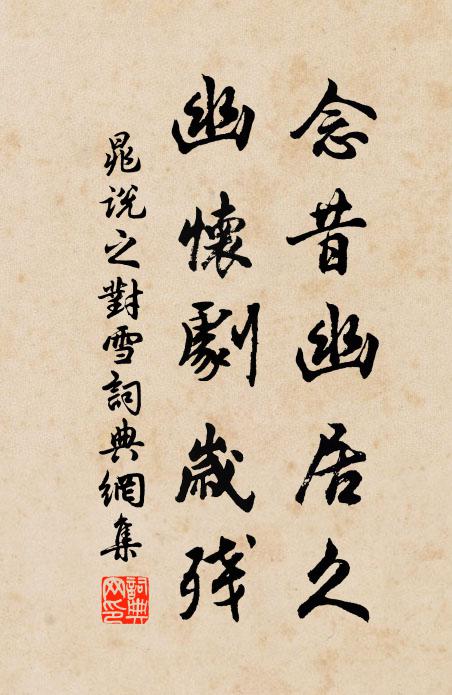 念昔幽居久
幽懷劇歲殘
晁說之對雪詞典網集
詞典网印